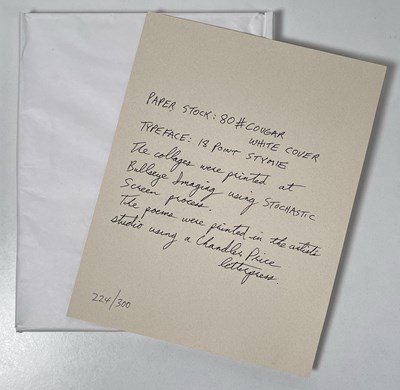 PAPER STOCK: 80# COUGAR
WHITE COVER
TYPEFACE: 18 POINT STYMIE
The collages were printed at
Bullseye Imaging using STOCHASTIC
Screen process.
The poems were printed in the artist's
studio using a Chandler Price
letterpress.
224/300